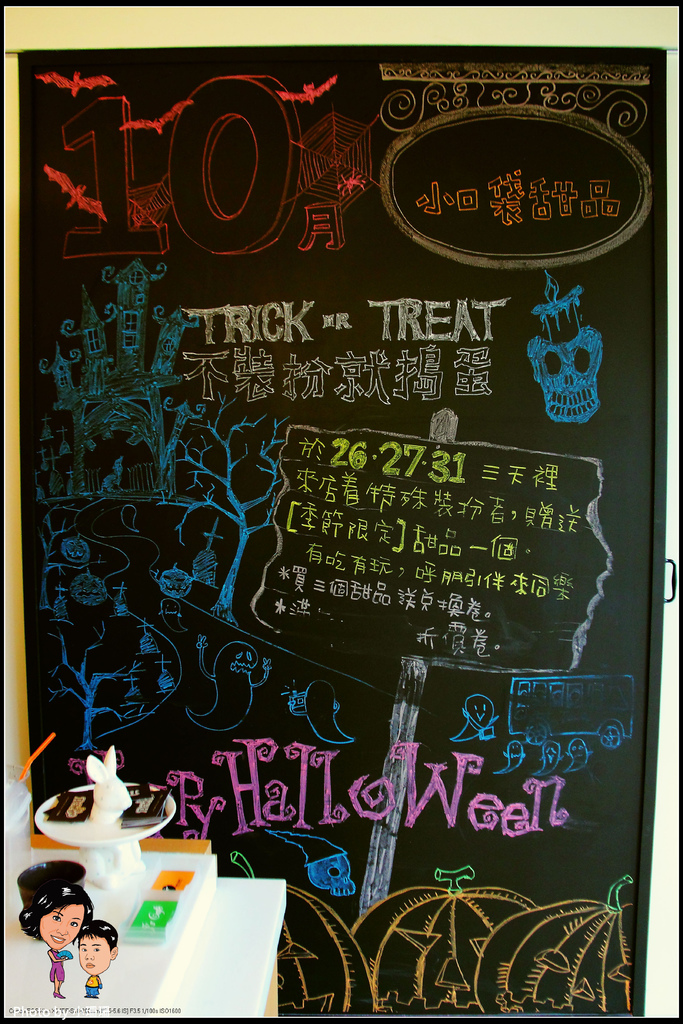 10月
小口袋甜品
TRICK OR TREAT
不裝扮就搗蛋
於26.27.31三天裡
來店着特殊裝扮者,贈送
[季節限定]甜品一個。
有吃有玩,呼朋引伴來同樂
*買三個甜品送兌換卷。
折價卷。
Halloween